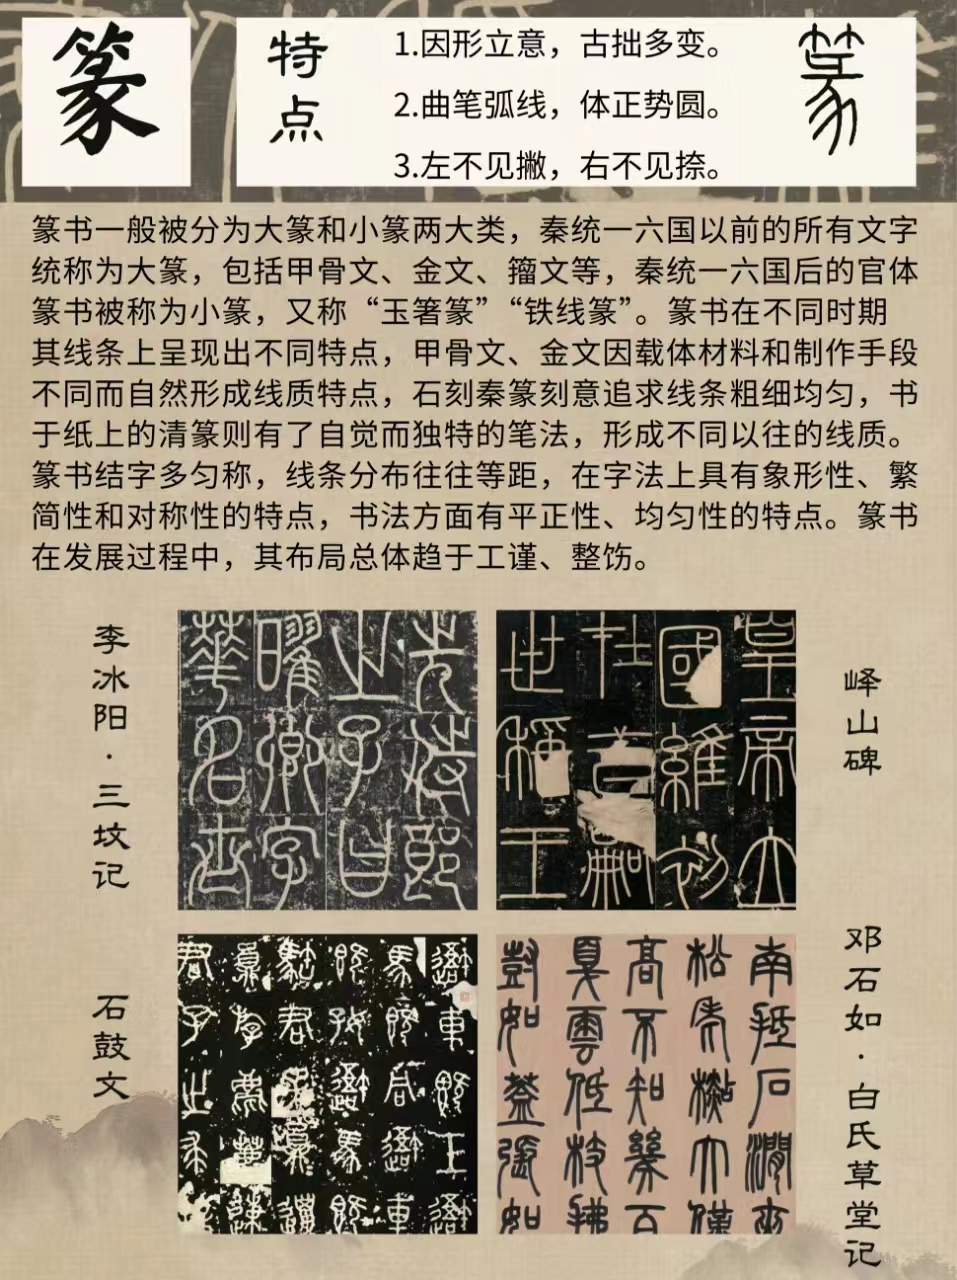 篆
特点
1.因形立意，古拙多变。
2.曲笔弧线，体正势圆。
3.左不见撇，右不见捺。
篆
篆书一般被分为大篆和小篆两大类，秦统一六国以前的所有文字
统称为大篆，包括甲骨文、金文、籀文等，秦统一六国后的官体
篆书被称为小篆，又称“玉箸篆”“铁线篆”。篆书在不同时期
其线条上呈现出不同特点，甲骨文、金文因载体材料和制作手段
不同而自然形成线质特点，石刻秦篆刻意追求线条粗细均匀，书
于纸上的清篆则有了自觉而独特的笔法，形成不同以往的线质。
篆书结字多匀称，线条分布往往等距，在字法上具有象形性、繁
简性和对称性的特点，书法方面有平正性、均匀性的特点。篆书
在发展过程中，其布局总体趋于工谨、整饬。
李冰阳·三坟记
峄山碑
皇帝立
國維初
在昔
世稱王
石鼓文
邓石如·白氏草堂记
南抵石澗夾
松老杉大僅
高不知幾百
戛雲低枝拂
如蓋張如